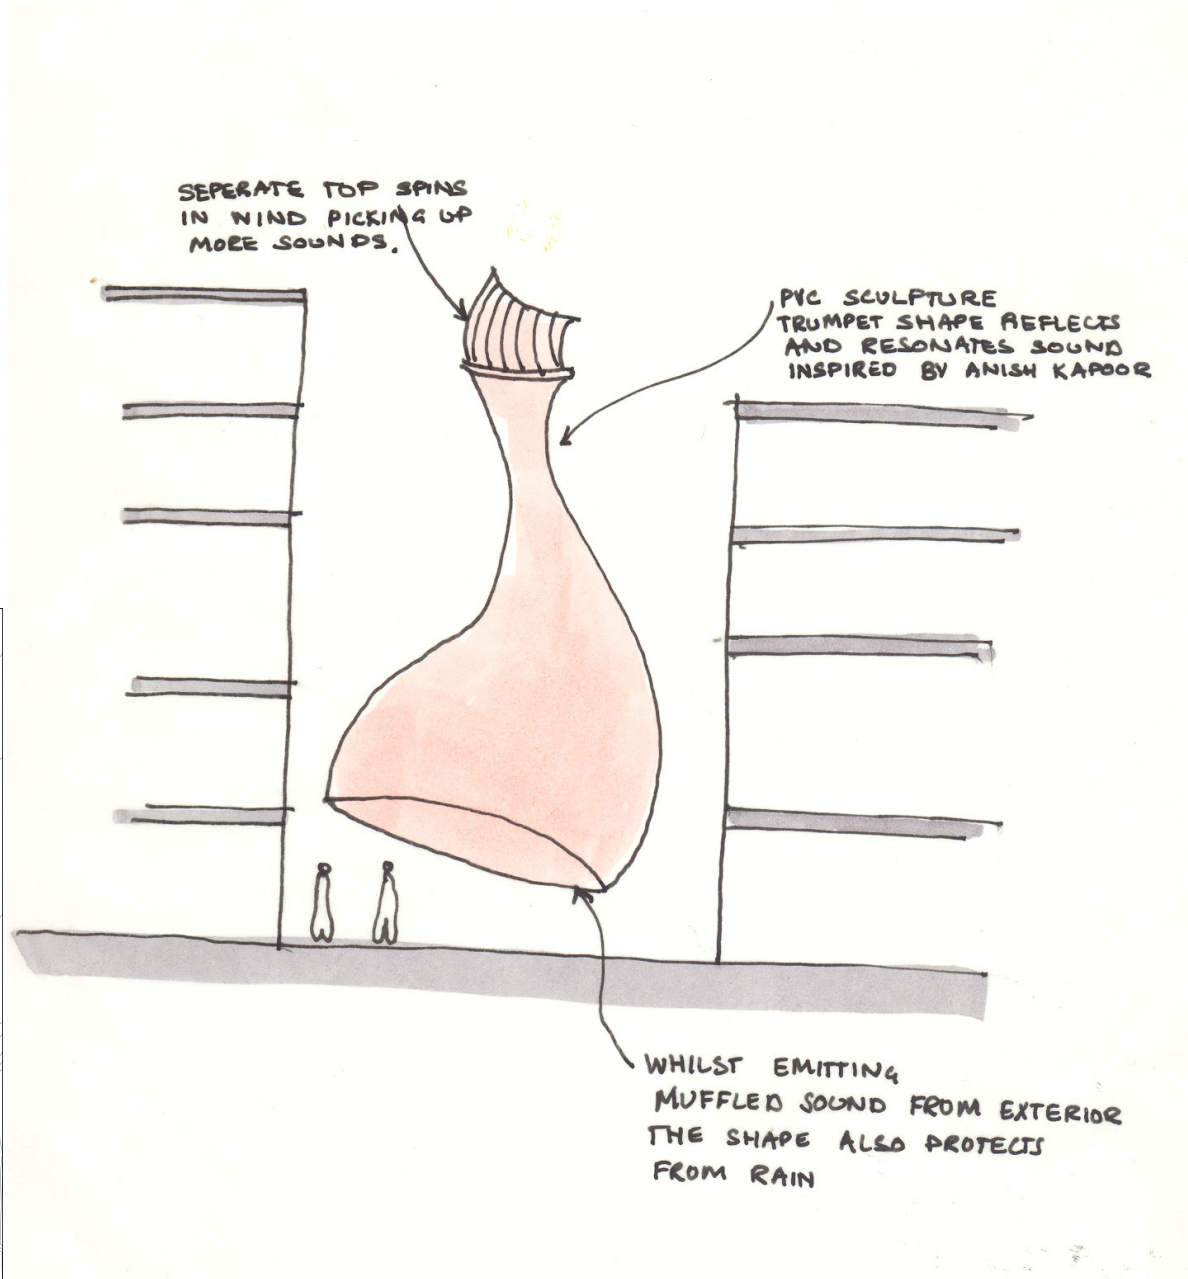 SEPERATE TOP SPINS
IN WIND PICKING UP
MORE SOUNDS.
PVC SCULPTURE
TRUMPET SHAPE REFLECTS
AND RESONATES SOUND
INSPIRED BY ANISH KAPOOR
WHILST EMITTING
MUFFLED SOUND FROM EXTERIOR
THE SHAPE ALSO PROTECTS
FROM RAIN